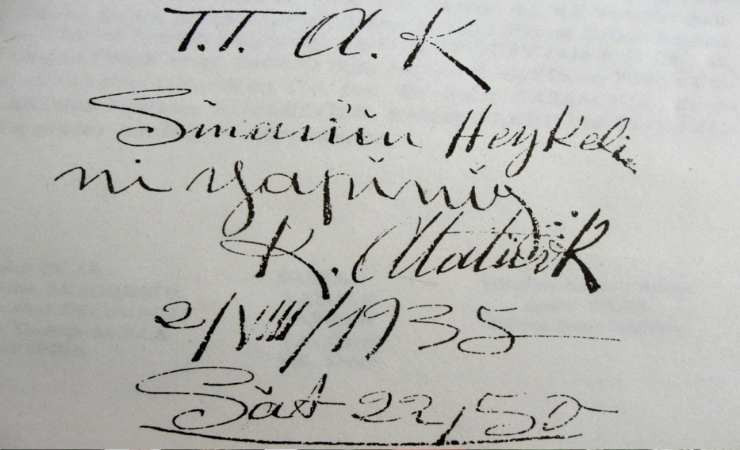 T.T. A.K
Sinan'ın Heykeli
ni yapınız
K. Atatürk
2/VIII/1935
Sāat 22,50